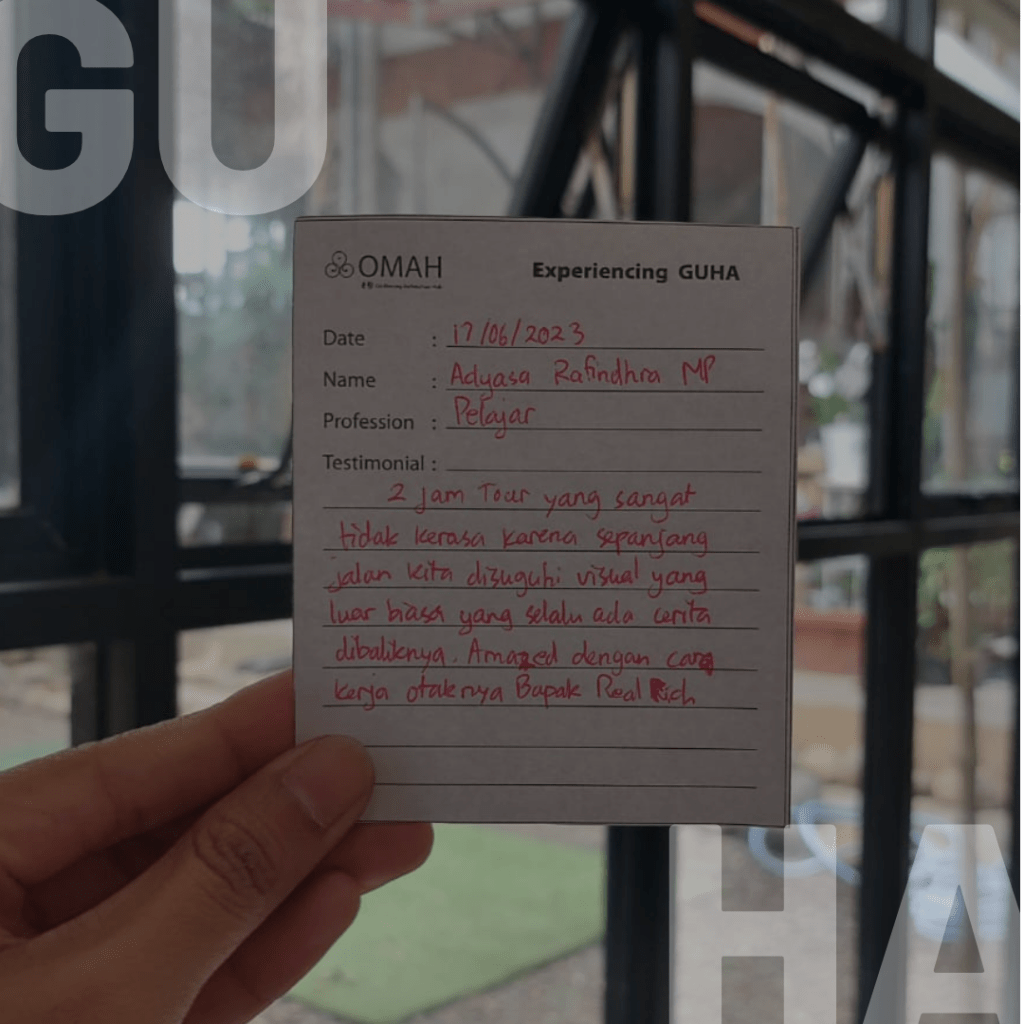 GU
OMAH
Experiencing GUHA
Date : 17/06/2023
Name : Adyasa Rafindhra MP
Profession : Pelajar
Testimonial :
2 jam Tour yang sangat
tidak kerasa karena sepanjang
jalan kita disuguhi visual yang
luar biasa yang selalu ada cerita
dibaliknya. Amazed dengan cara
kerja otaknya Bapak Real Rich
HA